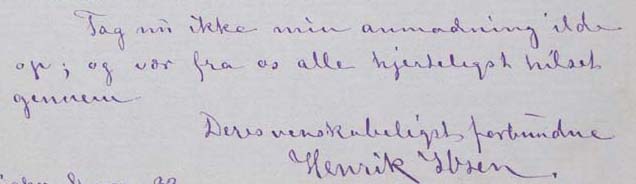 Tag nu ikke min anmodning ilde
op; og vær fra os alle hjerteligst hilset
gennem
Deres venskabeligst forbundne
Henrik Ibsen.